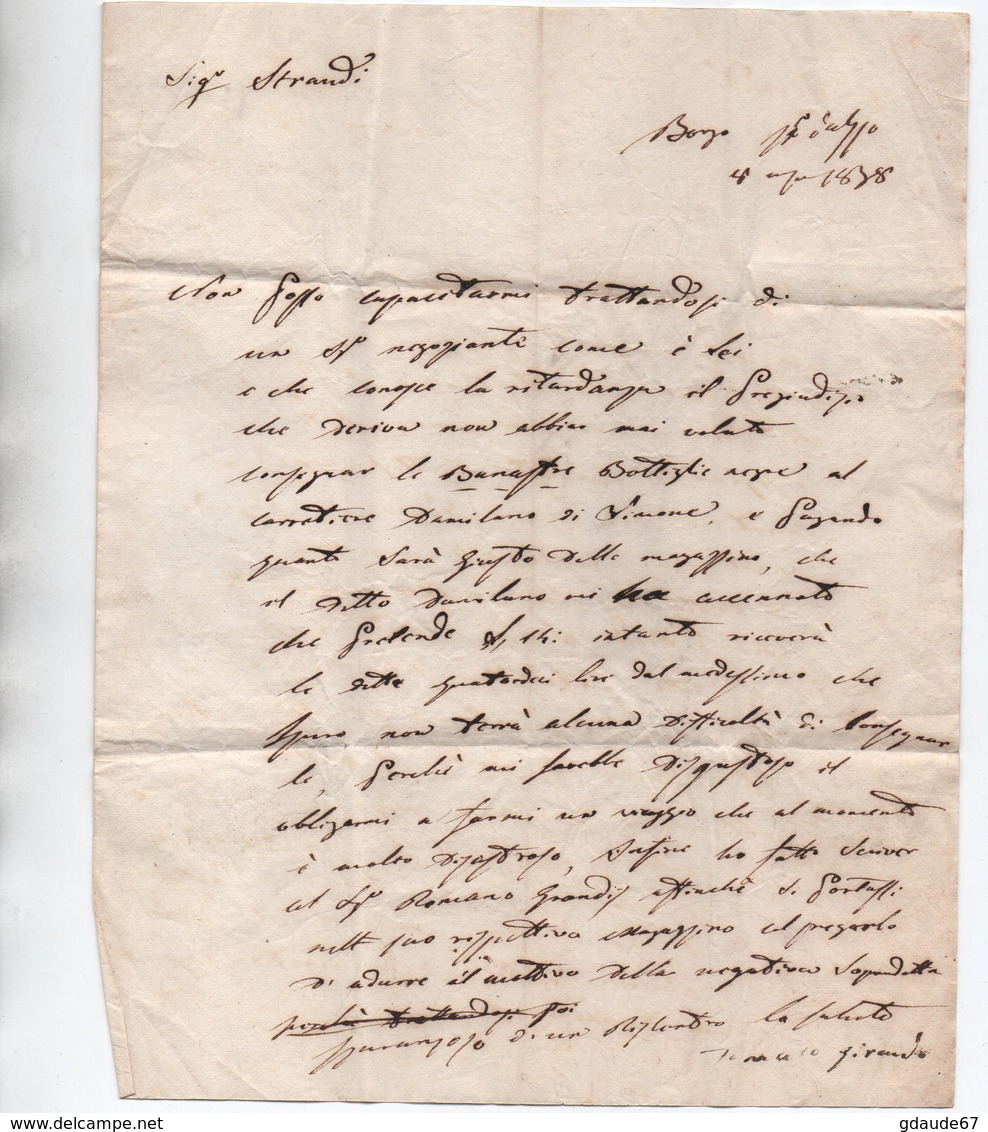 Sigr Strandi
Borgo S. Dalmazzo
1838
Non posso capacitarmi trattandosi di
un Sigr negoziante come è Lei
e che conosce la ritardanza il pregiudizio
che deriva non abbia mai voluto
consegnar le Banastre Bottiglie negre al
carrettiere Damilano di Simone, e pagando
quanto sarà giusto delle magazzino, che
il detto Damilano mi ha accennato
che pretende L. 14: intanto riceverà
le dette quatordeci lire dal medessimo che
spero non terrà alcuna difficoltà di consegnar
le, perchè mi sarebbe disgustoso il
obligarmi a farmi un viaggio che al momento
è molto disastroso, Infine ho fatto scriver
al Sigr Romano Grandis affinchè si portassi
nell suo rispettivo Magazzino al pregarlo
d'adurre il mottivo della negativa sopradetta
perchè trattandosi poi
speranzoso d'un Riscontro la saluto
Giraudo
gdaude67